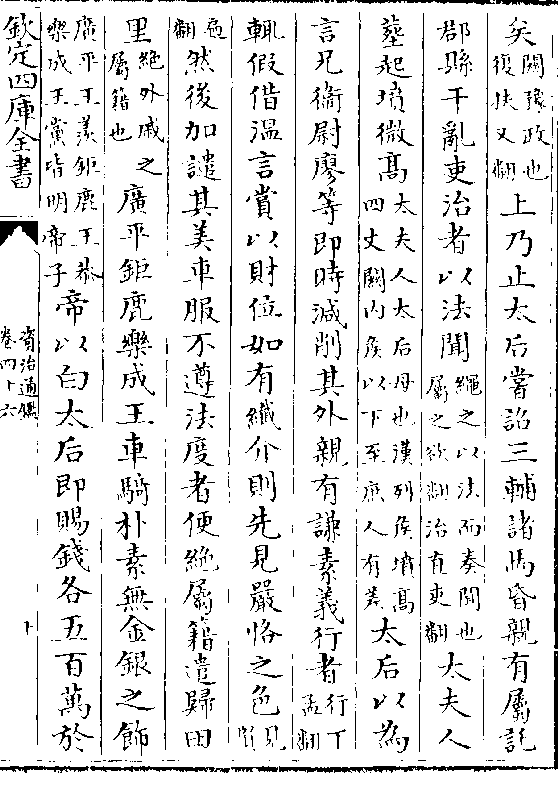 矣闕豫政也復扶又翻上乃止太后嘗詔三輔諸馬昏親有屬託
郡縣干亂吏治者以法聞繩之以法而奏聞也屬之欲翻治直吏翻太夫人
塟起墳微髙太夫人太后母也漢列侯墳髙四丈關内侯以下至庶人有差太后以為
言兄衞尉廖等即時減削其外親有謙素義行者行下孟翻
輒假借温言賞以財位如有纎介則先見嚴恪之色見賢
遍翻然後加譴其美車服不遵法度者便絶屬籍遣歸田
里絶外戚之屬籍也廣平鉅鹿樂成王車騎朴素無金銀之飾
廣平王羨鉅鹿王恭樂成王黨皆明帝子帝以白太后即賜錢各五百萬於
欽定四庫全書
資治通鑑
卷四十六